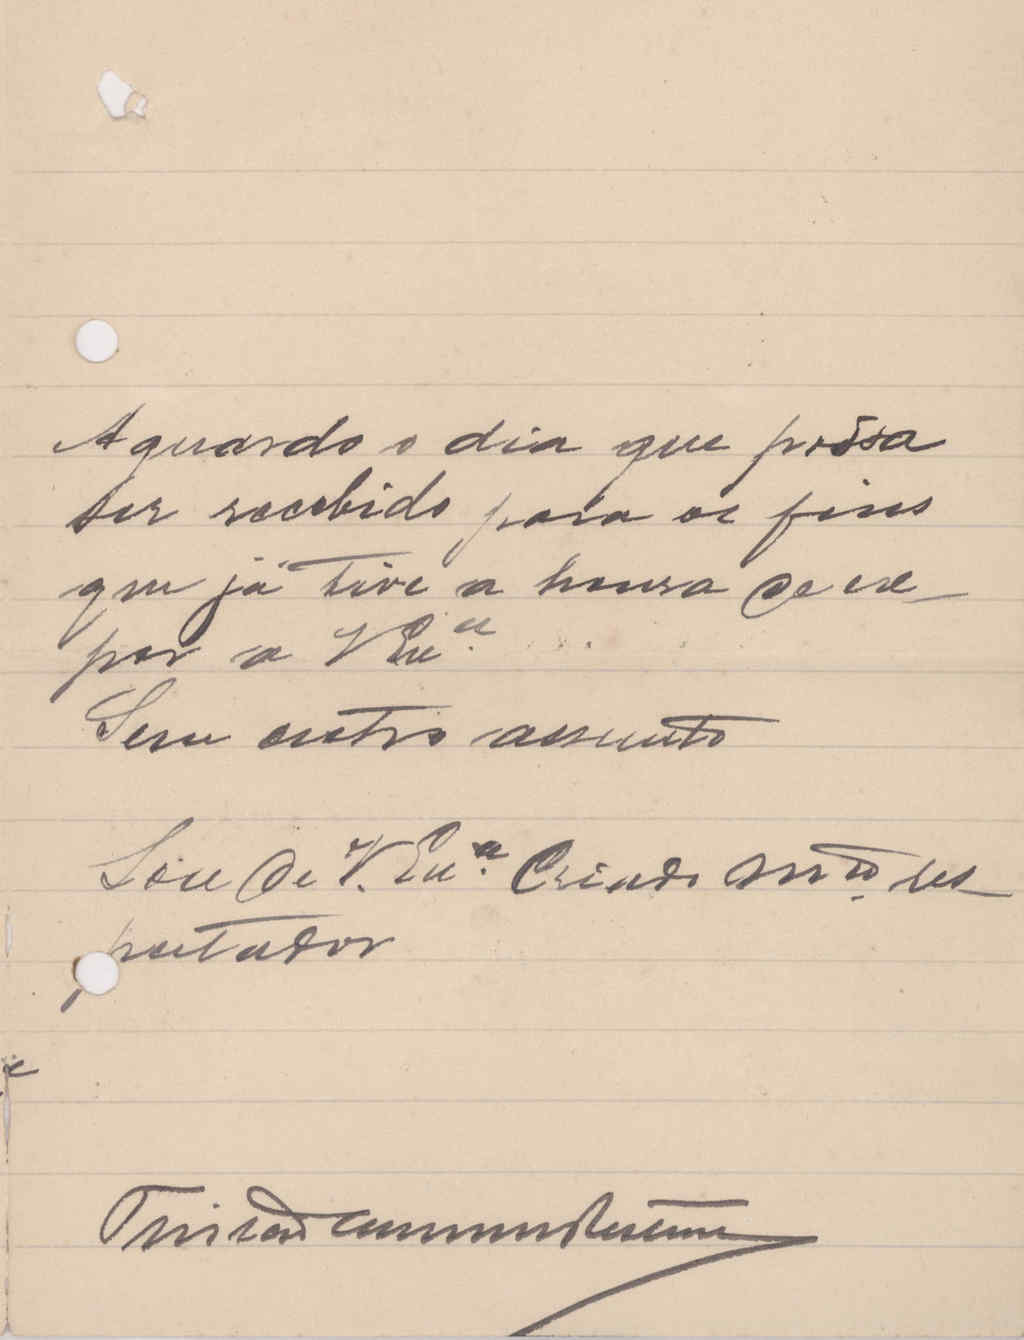 Aguardo o dia que possa
ser recebido para os fins
que já tive a honra de ex-
por a V Exª.
Sem outro assunto
Sou de V. Exª. Criado mtº res-
peitador